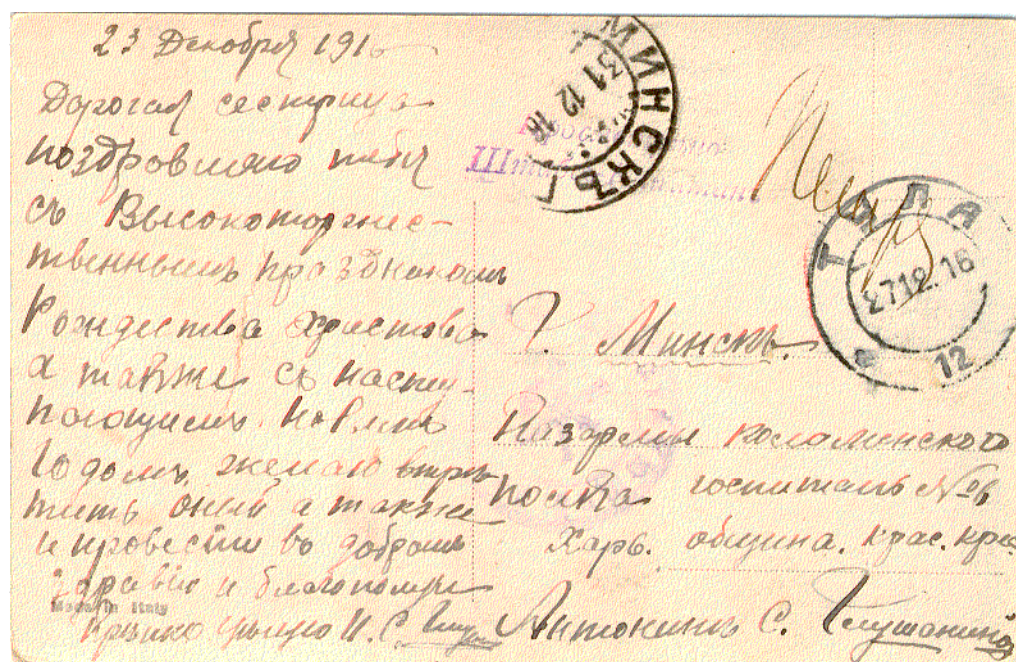 23 Декабря 1916
Дорогая сестрица
поздровляю тебя
съ Высокоторжес-
твеннымъ праздникомъ
Рождества Христова
а также съ насту-
пающимъ Новымъ
Годомъ, желаю встрѣ-
тить оный а также
и провести въ добромъ
здравіи и благополучіи
Крѣпко цѣлую И. С.
Made in Italy
МИНСКЪ Г
31 12 16
ТУЛА
27 12. 16
12
Г. Минскъ.
Казармы Коломинского
полка госпиталь №
Харь. община. Крас. Крес
Антонинѣ С. Глушаниной